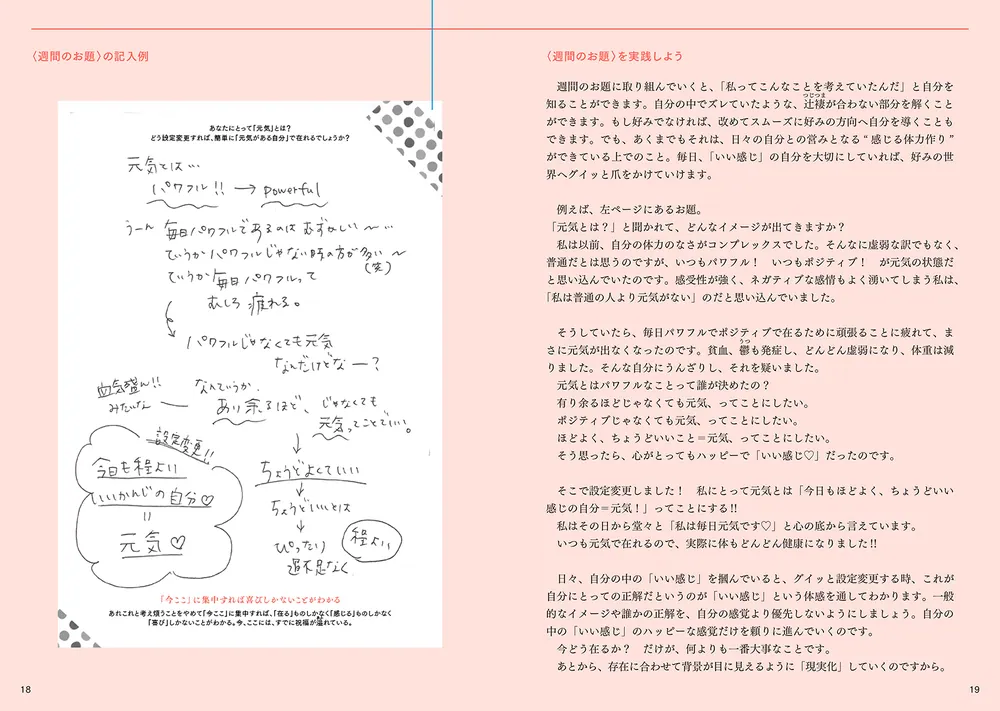 〈週間のお題〉の記入例
あなたにとって「元気」とは？
どう設定変更すれば、簡単に「元気がある自分」で在れるでしょうか？
元気とは…
パワフル!! → powerful
うーん 毎日パワフルであるのは むずかしい〜…
ていうかパワフルじゃない時の方が多い〜
(笑)
ていうか毎日パワフルって
むしろ疲れる。
パワフルじゃなくても元気
なんだけどなー？
血気盛ん!!
みたいな
なんていうか、
あり余るほど、じゃなくても
元気ってことでいい。
設定変更!!
今日も程よい
いいかんじの自分♡
＝
元気♡
ちょうどよくていい
ちょうどいいとは
ぴったり
過不足なく
程よい
「今ここ」に集中すれば喜びしかないことがわかる
あれこれと考え煩うことをやめて「今ここ」に集中すれば、「在る」ものしかなく「感じる」ものしかなく
「喜び」しかないことがわかる。今、ここには、すでに祝福が溢れている。
18
〈週間のお題〉を実践しよう
週間のお題に取り組んでいくと、「私ってこんなことを考えていたんだ」と自分を
知ることができます。自分の中でズレていたような、辻褄が合わない部分を解くこと
つじつま
ができます。もし好みでなければ、改めてスムーズに好みの方向へ自分を導くことも
できます。でも、あくまでもそれは、日々の自分との営みとなる“感じる体力作り”
ができている上でのこと。毎日、「いい感じ」の自分を大切にしていれば、好みの世
界へグイッと爪をかけていけます。
例えば、左ページにあるお題。
「元気とは？」と聞かれて、どんなイメージが出てきますか？
私は以前、自分の体力のなさがコンプレックスでした。そんなに虚弱な訳でもなく、
普通だとは思うのですが、いつもパワフル！　いつもポジティブ！　が元気の状態だ
と思い込んでいたのです。感受性が強く、ネガティブな感情もよく湧いてしまう私は、
「私は普通の人より元気がない」のだと思い込んでいました。
そうしていたら、毎日パワフルでポジティブで在るために頑張ることに疲れて、ま
さに元気が出なくなったのです。貧血、鬱も発症し、どんどん虚弱になり、体重は減
うつ
りました。そんな自分にうんざりし、それを疑いました。
元気とはパワフルなことって誰が決めたの？
有り余るほどじゃなくても元気、ってことにしたい。
ポジティブじゃなくても元気、ってことにしたい。
ほどよく、ちょうどいいこと＝元気、ってことにしたい。
そう思ったら、心がとってもハッピーで「いい感じ♡」だったのです。
そこで設定変更しました！　私にとって元気とは「今日もほどよく、ちょうどいい
感じの自分＝元気！」ってことにする!!
私はその日から堂々と「私は毎日元気です♡」と心の底から言えています。
いつも元気で在れるので、実際に体もどんどん健康になりました!!
日々、自分の中の「いい感じ」を掴んでいると、グイッと設定変更する時、これが
自分にとっての正解だというのが「いい感じ」という体感を通してわかります。一般
的なイメージや誰かの正解を、自分の感覚より優先しないようにしましょう。自分の
中の「いい感じ」のハッピーな感覚だけを頼りに進んでいくのです。
今どう在るか？　だけが、何よりも一番大事なことです。
あとから、存在に合わせて背景が目に見えるように「現実化」していくのですから。
19